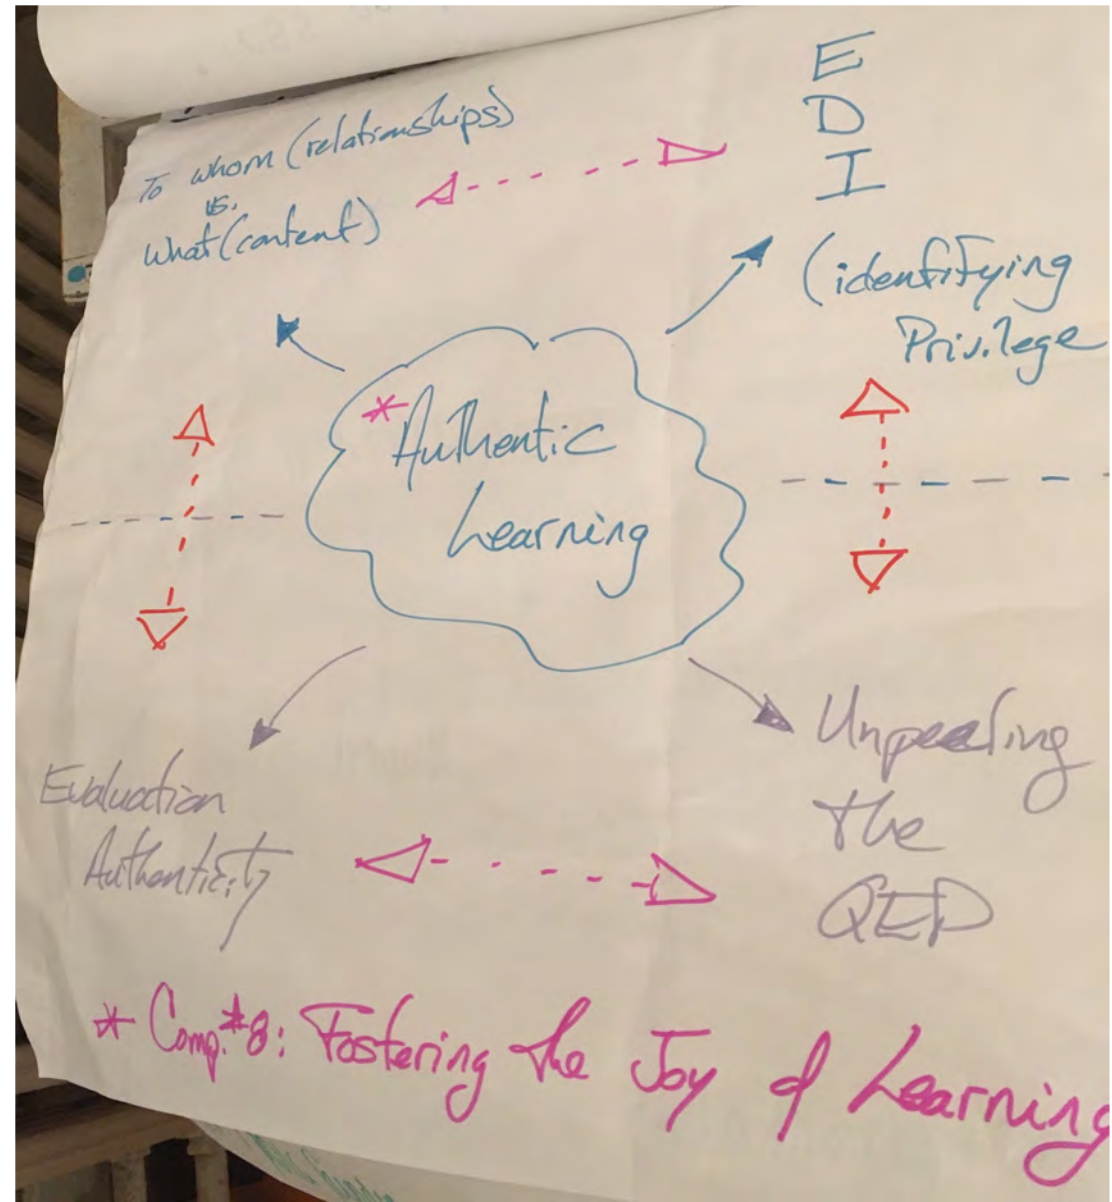 To whom (relationships)
vs.
what (content)
E
D
I
(identifying
Privilege
*Authentic
Learning
Evaluation
Authenticity
Unpeeling
the
QEP
* Comp. #8: Fostering the Joy of Learning